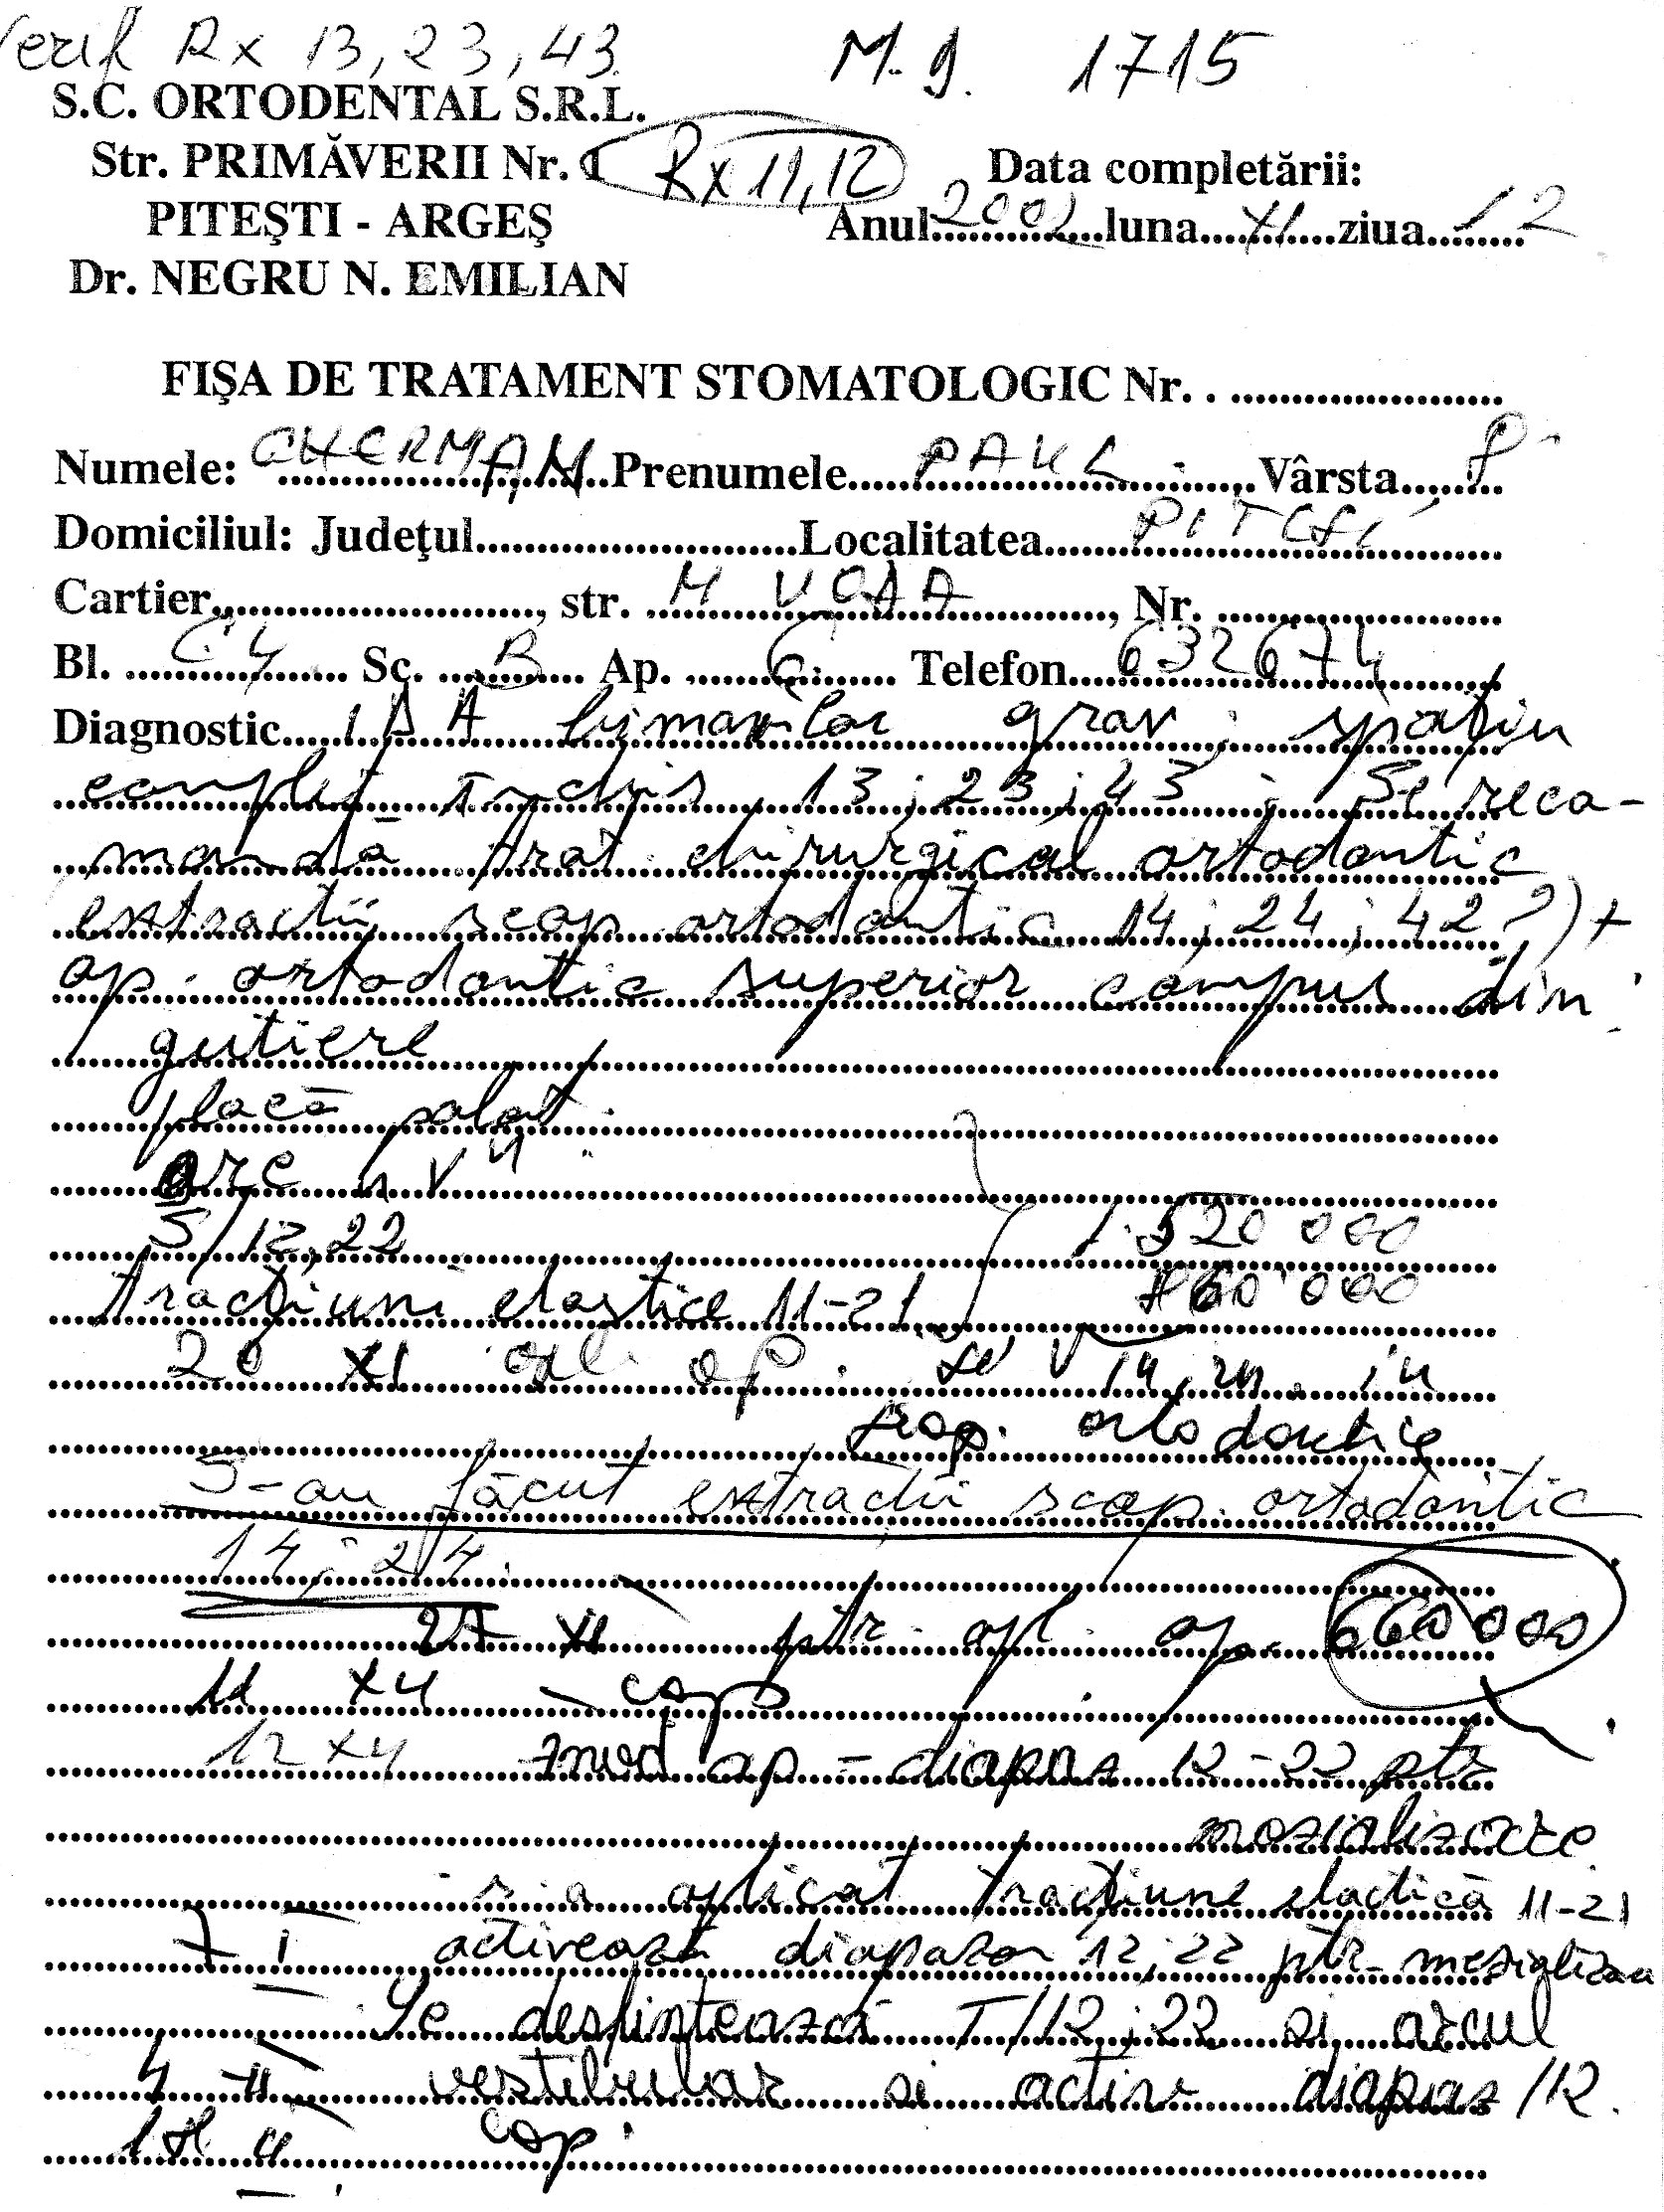 Verif Rx 13, 23, 43.
M. g. 1715
S.C. ORTODENTAL S.R.L.
Str. PRIMĂVERII Nr. 1
Rx 11, 12
Data completării:
PITEŞTI - ARGEŞ
Anul 2002 luna XI ziua 12
Dr. NEGRU N. EMILIAN
FIŞA DE TRATAMENT STOMATOLOGIC Nr. .
Numele: GHERMAN Prenumele PAUL Vârsta
Domiciliul: Judeţul Localitatea PITEŞTI
Cartier, str. M VODA, Nr.
Bl. C4 Sc. B Ap. 6 Telefon 632674
Diagnostic bimaxilar grav; spaţiu
complet închis 13; 23; 43. Se reco-
mandă trat. chirurgical ortodontic
extractii scop ortodontic 14; 24; 42?) +
ap. ortodontic superior compus din:
gutiere
placă palat.
arc V
S/12,22 1.520 000
tracţiuni elastice 11-21
20 XI ap. 14, 24. in
scop. ortodontic
S-au făcut extractii scop. ortodontic
14; 24.
27 XI ptr. apl. ap. 660 000
11 XII cap
12 XII ap - diapas 12-22 ptr
mezializare.
s-a aplicat tracţiune elastică 11-21
7 I activează diapazon 12; 22 ptr. mezializare
Se desfiintează T/12; 22 si arcul
4 II vestibular si activ diapas /12.
II cap.